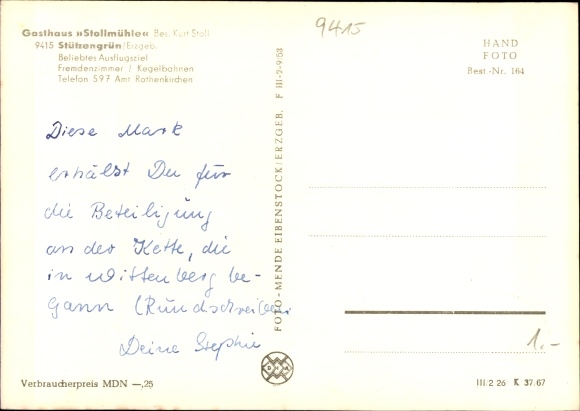 Gasthaus »Stollmühle« Bes. Kurt Stoll
9415 Stützengrün/Erzgeb.
Beliebtes Ausflugsziel
Fremdenzimmer / Kegelbahnen
Telefon 597 Amt Rothenkirchen
9415
HAND
FOTO
Best.-Nr. 164
Diese Mark
erhälst Du für
die Beteiligung
an der Kette, die
in Wittenberg be-
gann (Rundschreiben
Deine Stephie
FOTO-MENDE EIBENSTOCK/ERZGEB. F III-2-9/53
1.-
Verbraucherpreis MDN —,25
III/2 26 K 37/67